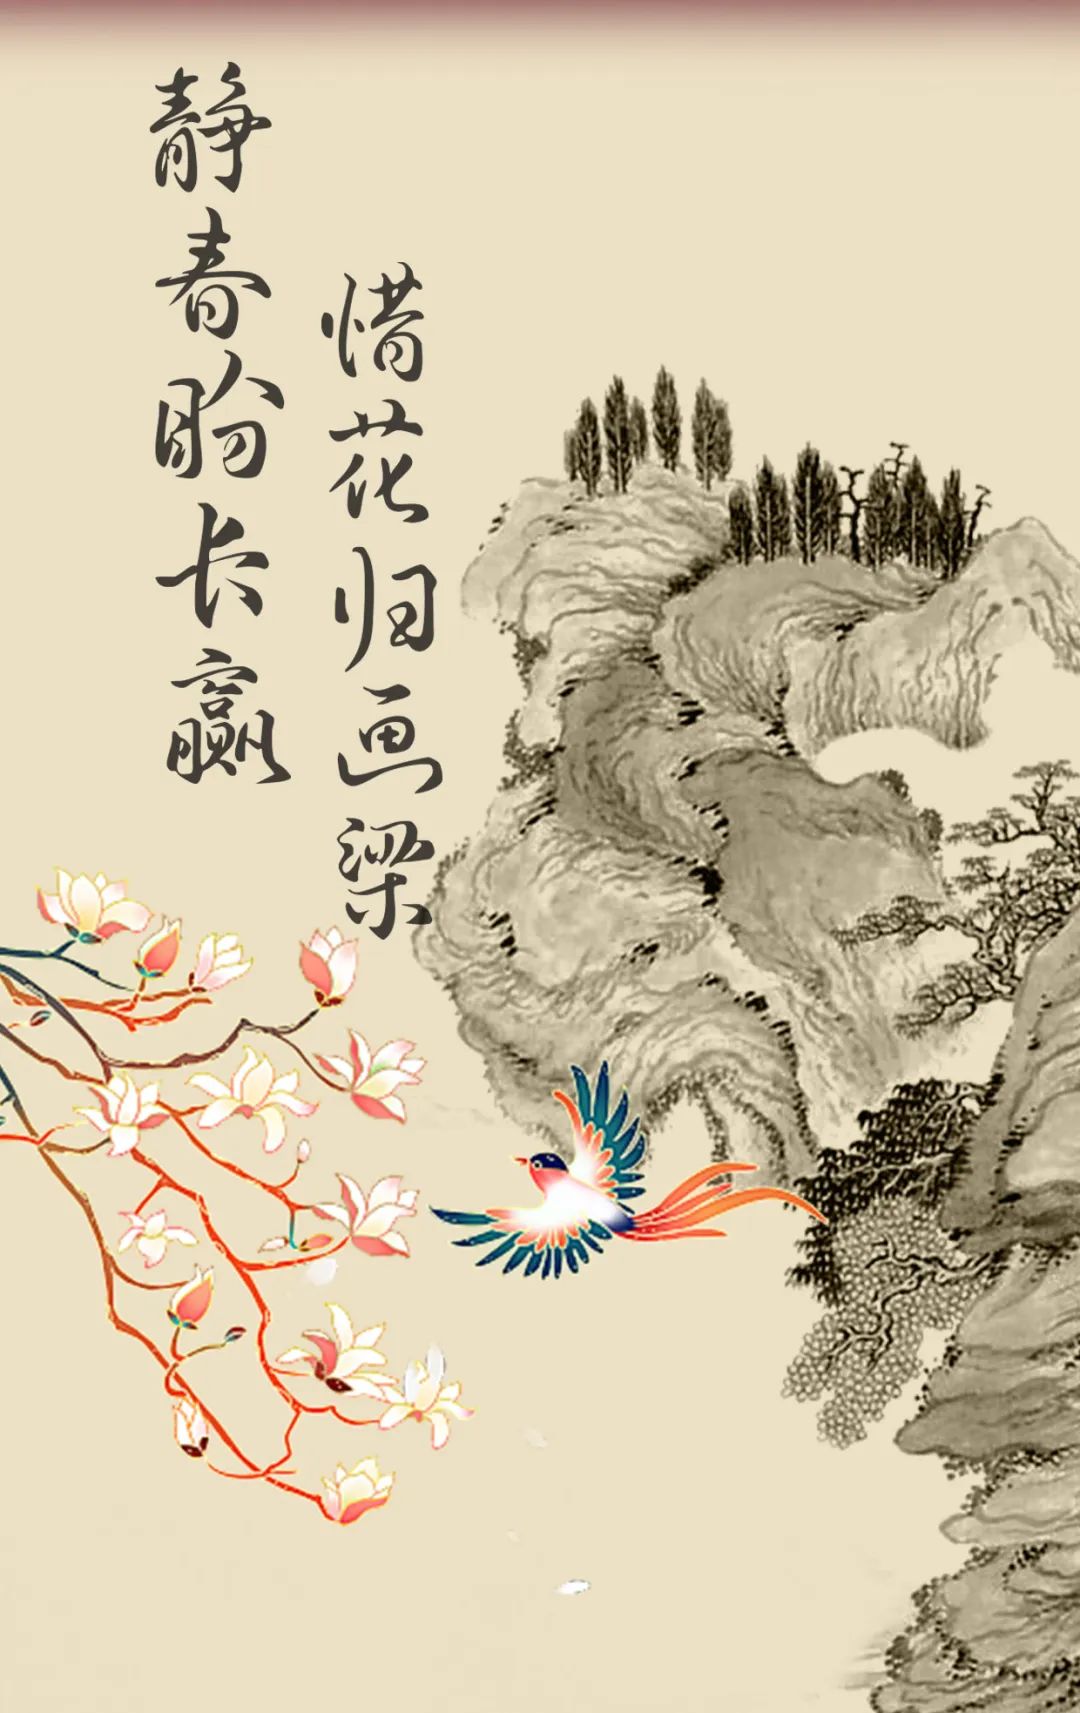 静春盼卡赢
惜花归画梁